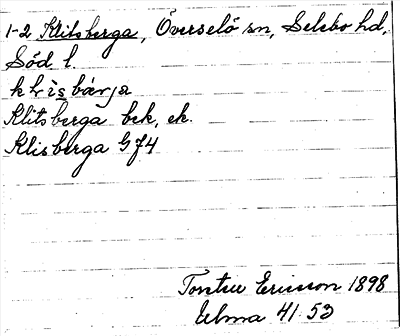 1-2 Klitsberga, Överselö sn, Selebo hd,
Söd. l.
klìsbárja
Klitsberga bek, ek.
Klisberga G74
Torsten Ericsson 1898
Ulma 41 53